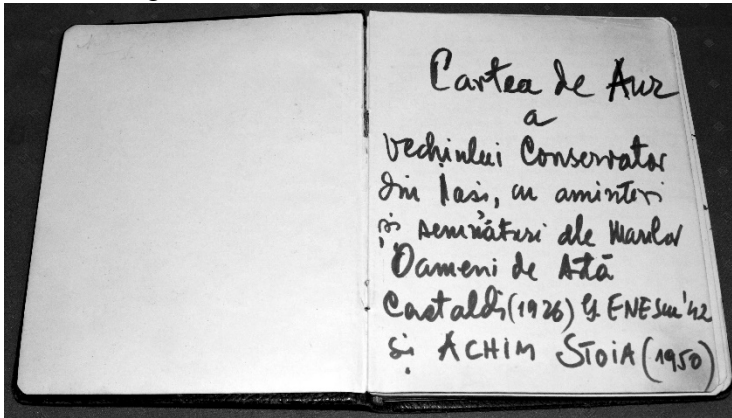 Cartea de Aur
a
vechiului Conservator
din Iasi, cu amintiri
și semnături ale Marilor
Oameni de Artă
Castaldi (1926) G. ENEScu '42
și ACHIM STOIA (1950)